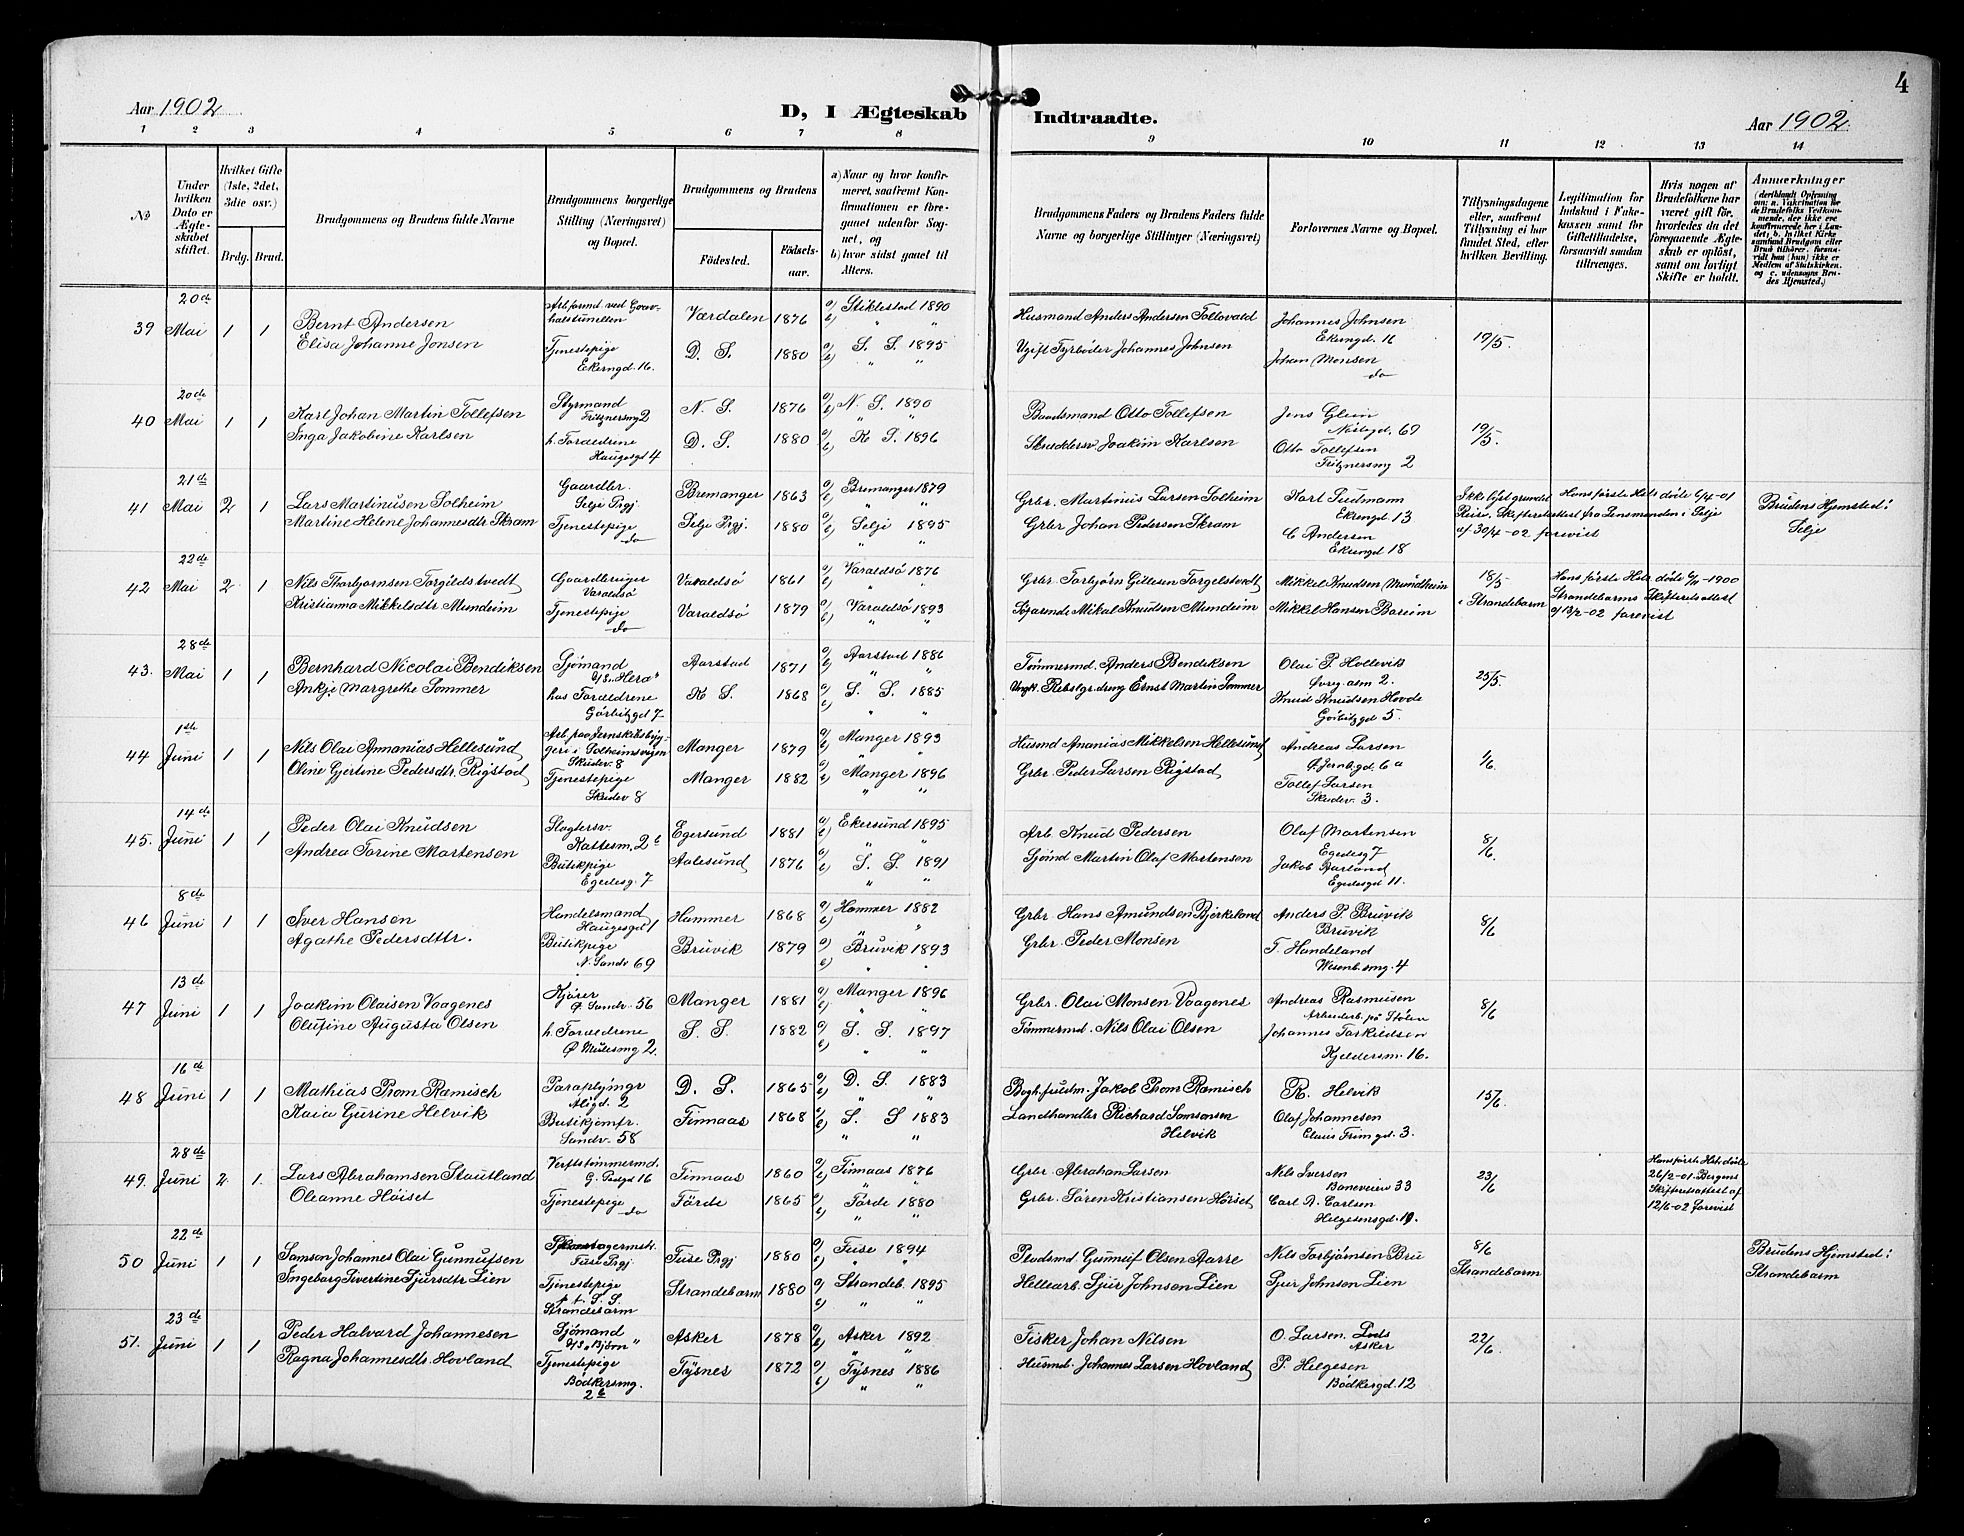 4
Aar 1902
D, I Ægteskab Indtraadte.
Aar 1902
1 2 3 4 5 6 7 8 9 10 11 12 13 14
No
Under hvilken Dato er Ægteskabet stiftet.
Hvilket Gifte (1ste, 2det, 3die osv.)
Brdg. Brud.
Brudgommens og Brudens fulde Navne
Brudgommens borgerlige Stilling (Næringsvei) og Bopæl.
Brudgommens og Brudens
Födested. Födselsaar.
a) Naar og hvor konfirmeret, saafremt Konfirmationen er foregaaet udenfor Sognet, og
b) hvor sidst gaaet til Alters.
Brudgommens Faders og Brudens Faders fulde Navne og borgerlige Stillinger (Næringsvei)
Forlovernes Navne og Bopæl.
Tillysningsdagene eller, saafremt Tillysning ei har fundet Sted, efter hvilken Bevilling.
Legitimation for Indskud i Enkekassen samt for Giftetilladelse, forsaavidt saadan tiltrænges.
Hvis nogen af Brudefolkene har været gift før, hvorledes da det foregaaende Ægteskab er opløst, samt om lovligt Skifte er holdt.
Anmærkninger
39 20de Mai 1 1
Bernt Andersen
Elisa Johanne Jonsen
Værdalen 1876 a) Stiklestad 1890
Tjenestepige Ekerngd. 16. D. S. 1880 a) S. S. 1895
Husmand Anders Andersen Tollovald
Ugift Fyrböder Johannes Johnsen
Johannes Johnsen
Ekerngd. 16
Johan Monsen
do
19/5.
40 20de Mai 1 1
Karl Johan Martin Tollefsen
Inga Jakobine Karlsen
Styrmand Fritznersmg 2 N. S. 1876 a) N. S. 1890
h. Foraeldrene Haugesgd 4 D. S. 1880 a) K S. 1896
Baadsmand Otto Tollefsen
Skræddersv. Joakim Karlsen
Jens Glein
Nöstegd. 69
Otto Tollefsen
Fritznersmg 2
19/5.
41 21de Mai 2 1
Lars Martinusen Solheim
Martine Helene Johannesdtr Skram
Gaardbr. Selje Prgj. Bremanger 1863 a) Bremanger 1879
Tjenestepige do Selje Prgj. 1880 a) Selje 1895
Grbr. Martinus Larsen Solheim
Grbr Johan Pedersen Skram
Karl Sudmann
Ekrengd 13
C Andersen
Ekrengd 18
Ikke lyst grundet Reise. Skifteretsattest fra Lensmanden i Selje af 30/4-02 forevist
Hans første Hst. døde 6/4-01
Brudens Hjemsted: Selje
42 22de Mai 2 1
Nils Thorbjornsen Torgildstvedt
Kristianna Mikkelsdtr Mundeim
Gaardbruger Varaldsö Varaldsö 1861 a) Varaldsö 1876
Tjenestepige do Varaldsö 1879 a) Varaldsö 1893
Grbr. Torbjørn Gillesen Torgelstvedt
Sogarende Mikal Knudsen Mundeim
Mikkel Knudsen Mundheim
Mikkel Hansen Bareim
18/5 i Strandebarm
Hans første Hst. døde 6/11-1900
Strandebarms Skifteretsattest af 13/2-02 forevist
43. 28de Mai 1 1
Bernhard Nicolai Bendiksen
Ankje Margrethe Sommer
Sjömand D/S. "Hera" Aarstad 1871 a) Aarstad 1886
hos Foraeldrene Görbitzgd 7 K S. 1868 a) S. S. 1885
Tömmermd. Anders Bendiksen
Rebslgr.dreng Ernst Martin Sommer
Olai P. Hollevik
Øvreg. alm 2.
Knud Knudsen Hovde
Görbitzgd 5.
25/5.
44 1ste Juni 1 1
Nils Olai Annanias Hellesund
Oline Gjertine Pedersdtr. Rigstad
Arb. paa Jernskibsbyggeri i Solheimsvigen Skudev. 8 Manger 1879 a) Manger 1893
Tjenestepige Skudev 8 Manger 1882 a) Manger 1896
Husmd Ananias Mikkelsen Hellesund
Grbr. Peder Larsen Rigstad
Andreas Larsen
Ø. Jernbgd. 6a
Tollef Larsen
Skudev. 3.
1/6.
45. 14de Juni 1 1
Peder Olai Knudsen
Andrea Torine Martensen
Slagtersv. Kattesm. 2b Egersund 1881 a) Ekersund 1895
Butikpige Egedesg. 7 Aalesund 1876 a) S. S. 1891
Arb. Knud Pedersen
Sjömd Martin Olaf Martensen
Olaf Martensen
Egedesg 7
Jakob Aarland
Egedesgd 11.
8/6.
46 8de Juni 1 1
Iver Hansen
Agathe Pedersdttr.
Handelsmand Haugesgd 1 Hammer 1868 a) Hammer 1882
Butikpige N. Sandv 69 Bruvik 1879 a) Bruvik 1893
Grbr. Hans Amundsen Bjerkeland
Grbr. Peder Monsen
Anders P. Bruvik
Bruvik
T. Handeland
Wesenb.smg. 4
8/6
47 13de Juni 1 1
Joakim Olaisen Vaagenes
Olufine Augusta Olsen
Kjörer Ø. Sandv. 56 Manger 1881 a) Manger 1896
h. Foraeldrene Ø Mulesmg 2. S. S. 1882 a) S. S. 1897
Grbr. Olai Monsen Vaagenes
Tömmermd. Nils Olai Olsen
Andreas Rasmusen
Arbeiderb. på Stölen
Johannes Torkildsen
Kjeldersm. 16.
8/6
48 16de Juni 1 1
Mathias Prom Ramisch
Kaia Gurine Helvik
Paraplymgr Aligd. 2 D. S. 1865 a) D. S. 1883
Butikjomfr. Sandv. 58 Finnaas 1868 a) S. S 1883
Bogh.fuldm. Jakob Prom Ramisch
Landhandler Richard Samsonsen Helvik
R. Helvik
Olaf Johannesen
Claus Frimgd. 3.
15/6.
49. 28de Juni 2 1
Lars Abrahamsen Stautland
Oleanne Höiset
Verftstömmermd. Finnaas 1860 a) Finnaas 1876
Tjenestepige do Förde 1865 a) Förde 1880
Grbr. Abraham Larsen
Grbr. Sören Kristiansen Höiset
Nils Iversen
Baneveien 33
Carl A. Carlsen
Helgesensgd. 19.
23/6
Hans første Hst. døde 26/2-01. Bergens Skifteretsattest af 12/6-02 forevist
50 22de Juni 1 1
Samson Johannes Olai Gunnufsen
Ingeborg Sivertine Sjursdtr Lien
Fuse Prgj. Fuse Prgj 1880 a) Fuse 1894
Tjenestepige p. t. S. S. Strandebarm Strandebarm 1880 a) Strandeb. 1895
Pladsmd Gunnuf Olsen Aarre
Hellearb. Sjur Johnsen Lien
Nils Torbjömsen Bru
Sjur Johnsen Lien
8/6 Strandebarm
Brudens Hjemsted: Strandebarm
51. 23de Juni 1 1
Peder Halvard Johannesen
Ragna Johannesdtr. Hovland
Sjömand D/S "Björn" Asker 1878 a) Asker 1892
Tjenestepige Bödkersmg. 2b Tysnes 1872 a) Tysnes 1886
Fisker Johan Nilsen
Husmd. Johannes Larsen Hovland
O. Larsen. Lods
Asker
P. Helgesen
Bödkergd. 12
22/6